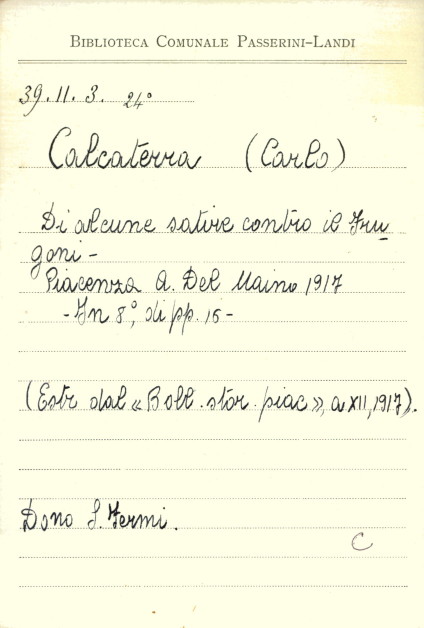 BIBLIOTECA COMUNALE PASSERINI-LANDI
39.11.3. 24°
Calcaterra (Carlo)
Di alcune satire contro il Fru
goni -
Piacenza A. Del Maino 1917
- In 8°, di pp. 16 -
(Estr dal « Boll. stor. piac », a XII, 1917).
Dono S. Fermi.
C